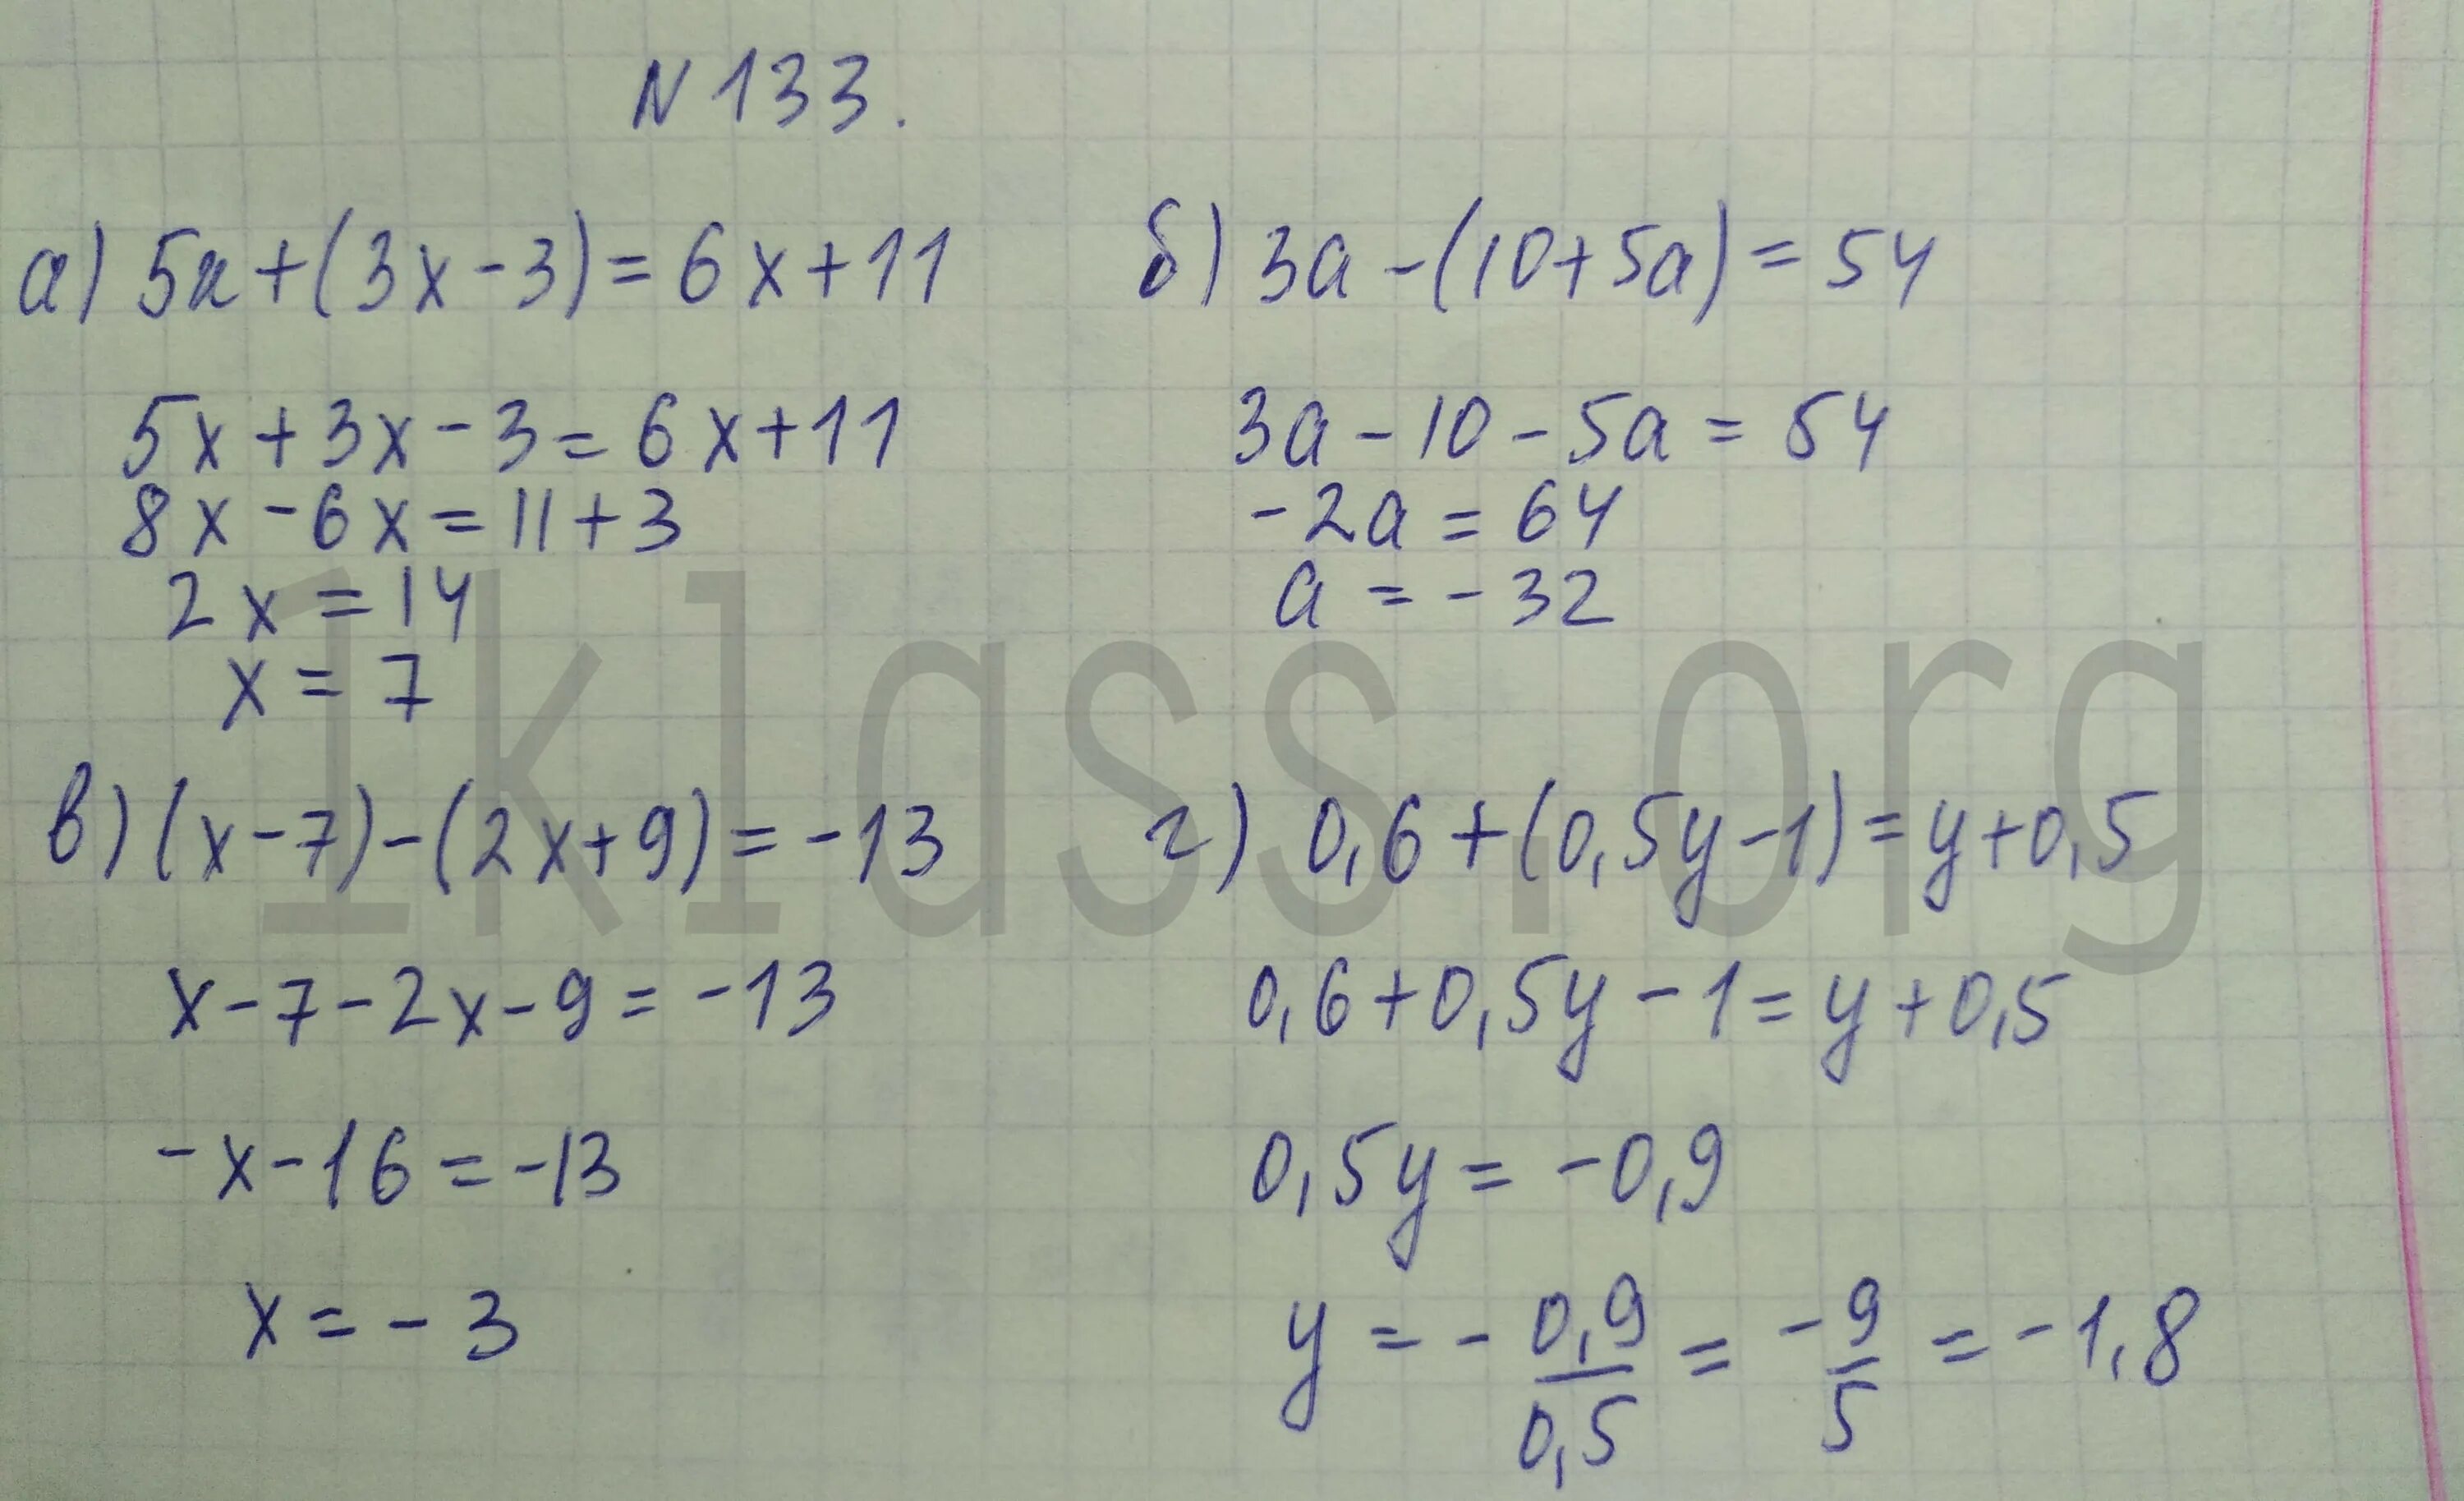 N 133.
а) 5x+(3x-3)=6x+11
5x+3x-3=6x+11
8x-6x=11+3
2x=14
x=7
б) 3a-(10+5a)=54
3a-10-5a=54
-2a=64
a=-32
в) (x-7)-(2x+9)=-13
x-7-2x-9=-13
-x-16=-13
x=-3
г) 0,6+(0,5y-1)=y+0,5
0,6+0,5y-1=y+0,5
0,5y=-0,9
y=-0,9/0,5=-9/5=-1,8
1klass.org